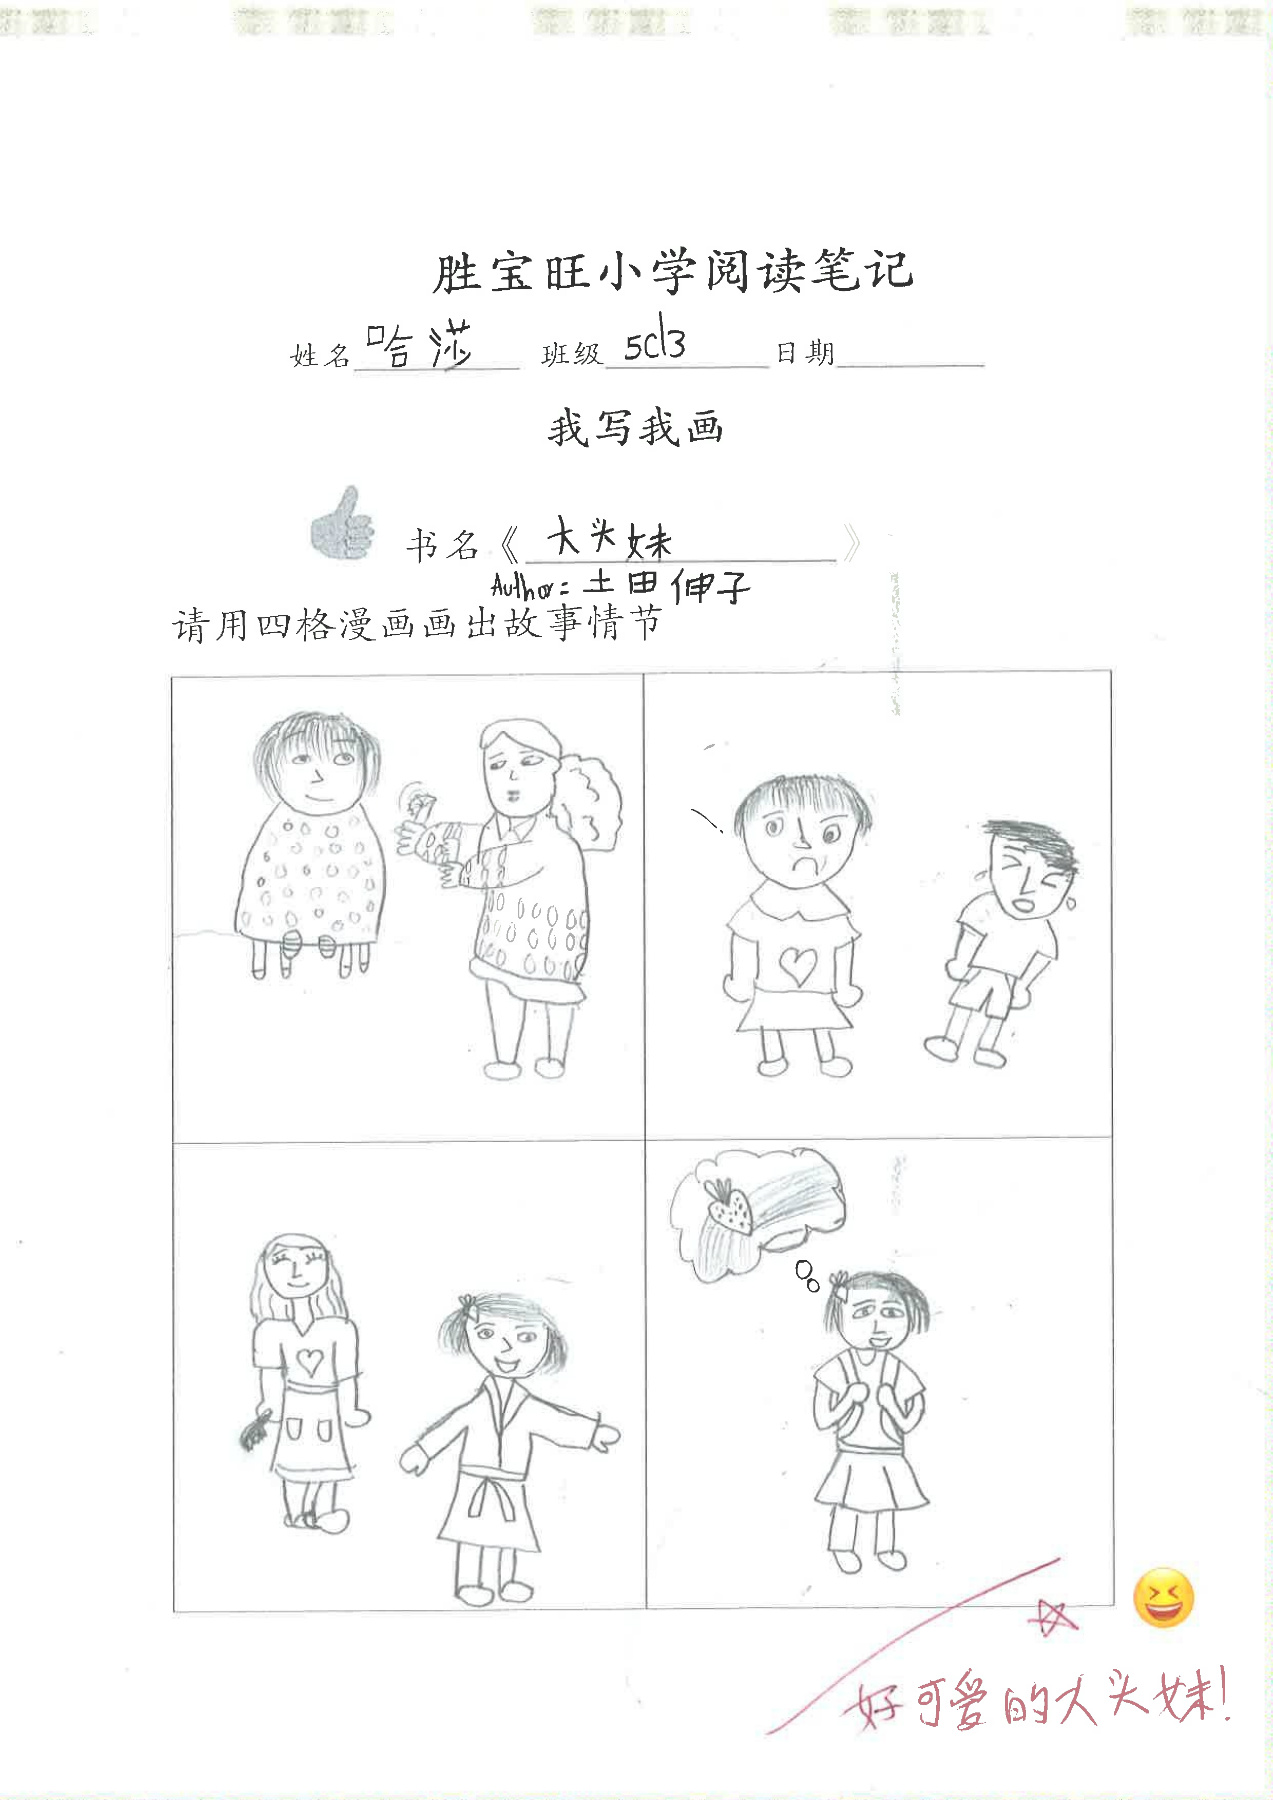 胜宝旺小学阅读笔记
姓名 哈莎 班级 5C13 日期
我写我画
书名《大头妹》
Author: 土田伸子
请用四格漫画画出故事情节
好可爱的大头妹!